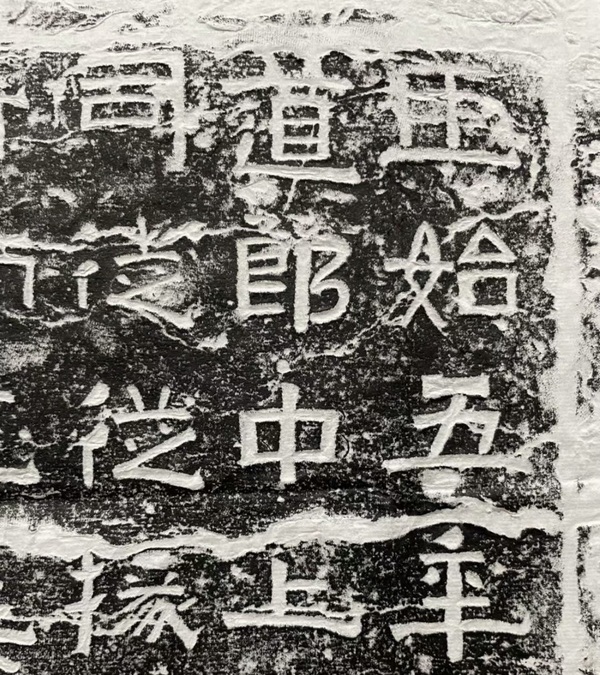 正始五年
道郎中上
從從掾